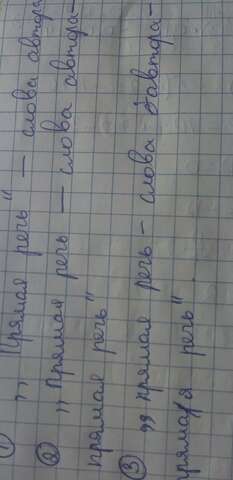 ① „Прямая речь" — слова автора
② „Прямая речь — слова автора —
прямая речь"
③ „прямая речь – слова Завтра —
прямая речь"